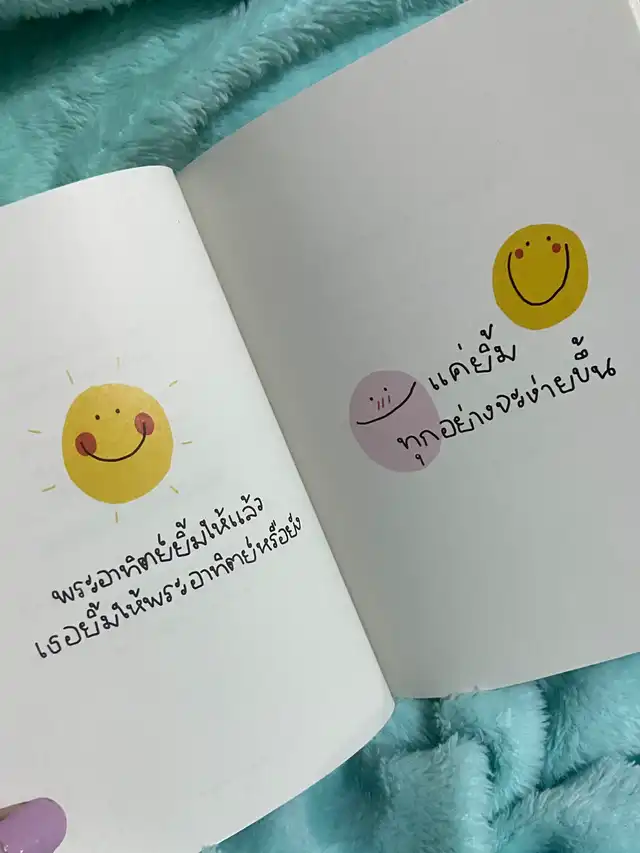 พระอาทิตย์ยิ้มให้แล้ว
เธอยิ้มให้พระอาทิตย์หรือยัง
แค่ยิ้ม
ทุกอย่างจะง่ายขึ้น